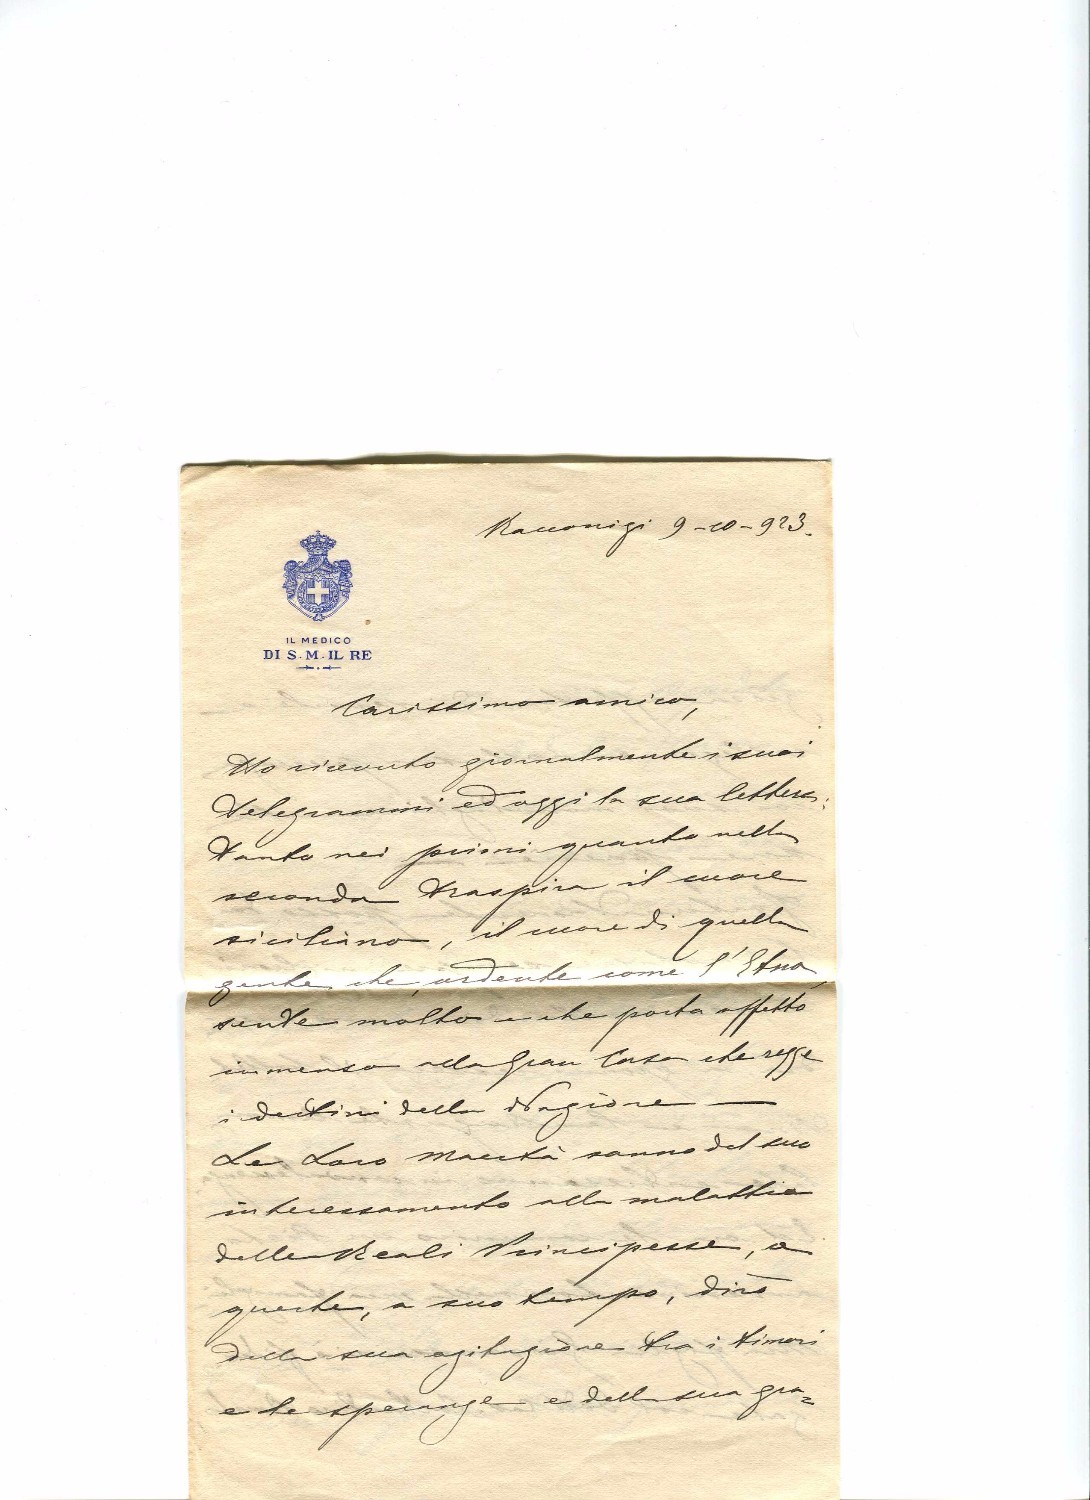 Racconigi 9-10-923.
IL MEDICO
DI S. M. IL RE
Carissimo amico,
Ho ricevuto giornalmente i suoi
telegrammi ed oggi la sua lettera:
tanto nei primi quanto nella
seconda traspira il cuore
siciliano, il cuore di quella
gente che, ardente come l'Etna,
sente molto e che porta affetto
immenso alla Gran Casa che regge
i destini della Nazione —
Le Loro Maestà sanno del suo
interessamento alla malattia
delle Reali Principesse, a
queste, a suo tempo, dirò
della sua agitazione tra i timori
e le speranze e della sua gra=